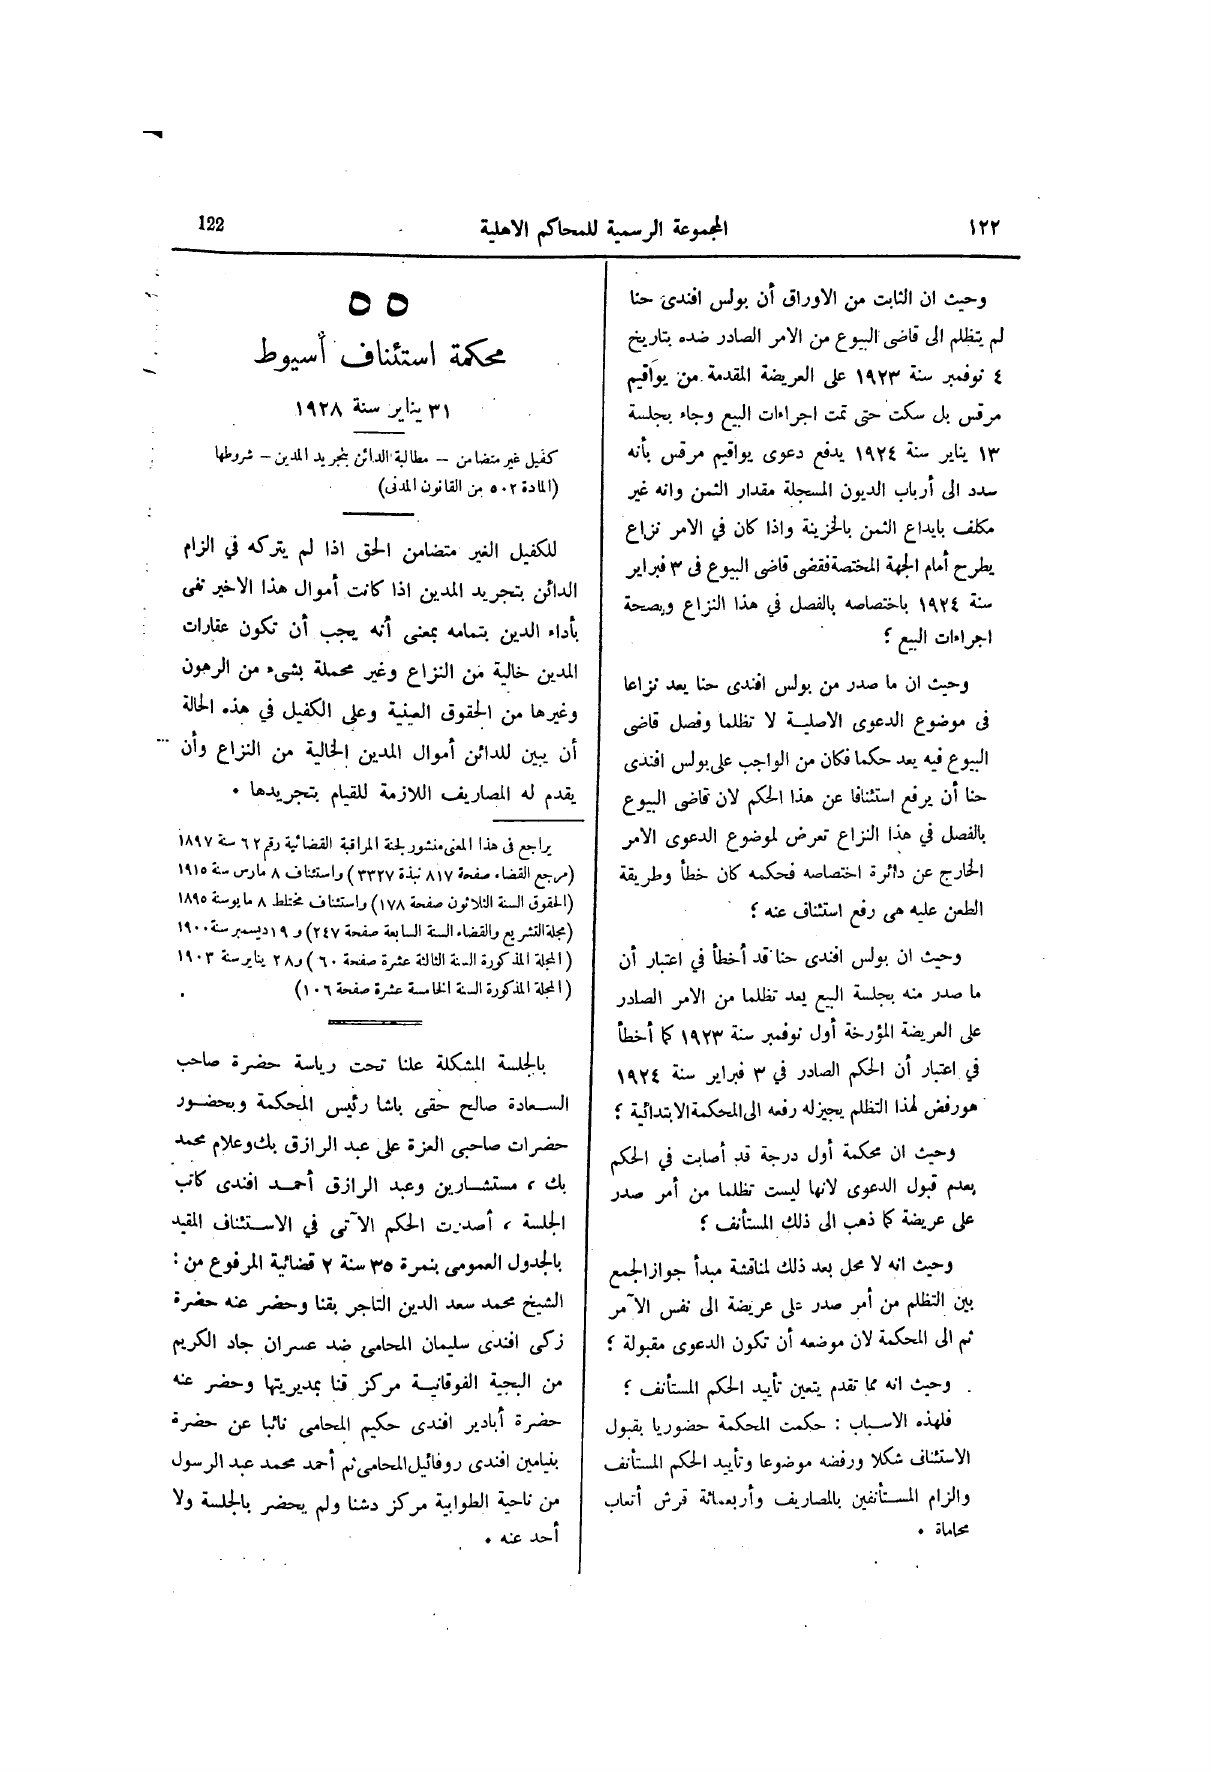 ١٢٢
المجموعة الرسمية للمحاكم الاهلية
122
وحيث ان الثابت من الاوراق أن بولس افندى حنا
لم يتظلم الى قاضى البيوع من الامر الصادر ضده بتاريخ
٤ نوفمبر سنة ١٩٢٣ على العريضة المقدمة من يواقيم
مرقس بل سكت حتى تمت اجراءات البيع وجاء بجلسة
١٣ يناير سنة ١٩٢٤ يدفع دعوى يواقيم مرقس بأنه
سدد الى أرباب الديون المسجلة مقدار الثمن وانه غير
مكلف بايداع الثمن بالخزينة واذا كان في الامر نزاع
يطرح أمام الجهة المختصة فقضى قاضى البيوع فى ٣ فبراير
سنة ١٩٢٤ باختصاصه بالفصل في هذا النزاع وبصحة
اجراءات البيع ؛
وحيث ان ما صدر من بولس افندى حنا يعد نزاعا
فى موضوع الدعوى الاصلية لا تظلما وفصل قاضى
البيوع فيه يعد حكما فكان من الواجب على بولس افندى
حنا أن يرفع استئنافا عن هذا الحكم لان قاضى البيوع
بالفصل في هذا النزاع تعرض لموضوع الدعوى الامر
الخارج عن دائرة اختصاصه فحكمه كان خطأ وطريقة
الطعن عليه هى رفع استئناف عنه ؛
وحيث ان بولس افندى حنا قد أخطأ في اعتبار أن
ما صدر منه بجلسة البيع يعد تظلما من الامر الصادر
على العريضة المؤرخة أول نوفمبر سنة ١٩٢٣ كما أخطأ
في اعتبار أن الحكم الصادر في ٣ فبراير سنة ١٩٢٤
هو رفض لهذا التظلم يجيز له رفعه الى المحكمة الابتدائية ؛
وحيث ان محكمة أول درجة قد أصابت في الحكم
بعدم قبول الدعوى لانها ليست تظلما من أمر صدر
على عريضة كما ذهب الى ذلك المستأنف ؛
وحيث انه لا محل بعد ذلك لمناقشة مبدأ جواز الجمع
بين التظلم من أمر صدر على عريضة الى نفس الآمر
ثم الى المحكمة لان موضعه أن تكون الدعوى مقبولة ؛
وحيث انه مما تقدم يتعين تأييد الحكم المستأنف ؛
فلهذه الاسباب : حكمت المحكمة حضوريا بقبول
الاستئناف شكلا ورفضه موضوعا وتأييد الحكم المستأنف
والزام المستأنفين بالمصاريف وأربعمائة قرش أتعاب
محاماة .
٥٥
محكمة استئناف أسيوط
٣١ يناير سنة ١٩٢٨
كفيل غير متضامن – مطالبة الدائن بتجريد المدين – شروطها
(المادة ٥٠٢ من القانون المدنى)
للكفيل الغير متضامن الحق اذا لم يتركه في الزام
الدائن بتجريد المدين اذا كانت أموال هذا الاخير تفى
بأداء الدين بتمامه بمعنى أنه يجب أن تكون عقارات
المدين خالية من النزاع وغير محملة بشىء من الرهون
وغيرها من الحقوق العينية وعلى الكفيل في هذه الحالة
أن يبين للدائن أموال المدين الخالية من النزاع وأن
يقدم له المصاريف اللازمة للقيام بتجريدها .
يراجع فى هذا المعنى منشور لجنة المراقبة القضائية رقم ٦٢ سنة ١٨٩٧
(مرجع القضاء صفحة ٨١٧ نبذة ٣٣٢٧) واستئناف ٨ مارس سنة ١٩١٥
(الحقوق السنة الثلاثون صفحة ١٧٨) واستئناف مختلط ٨ مايو سنة ١٨٩٥
(مجلة التشريع والقضاء السنة السابعة صفحة ٢٤٧) و ١٩ ديسمبر سنة ١٩٠٠
(المجلة المذكورة السنة الثالثة عشرة صفحة ٦٠) و ٢٨ يناير سنة ١٩٠٣
(المجلة المذكورة السنة الخامسة عشرة صفحة ١٠٦)
بالجلسة المشكلة علنا تحت رياسة حضرة صاحب
السعادة صالح حقى باشا رئيس المحكمة وبحضور
حضرات صاحبى العزة على عبد الرازق بك وعلام محمد
بك ، مستشارين وعبد الرازق أحمد افندى كاتب
الجلسة ، أصدرت الحكم الآتى في الاستئناف المقيد
بالجدول العمومى بنمرة ٣٥ سنة ٢ قضائية المرفوع من :
الشيخ محمد سعد الدين التاجر بقنا وحضر عنه حضرة
زكى افندى سليمان المحامى ضد عسران جاد الكريم
من البجية الفوقانية مركز قنا بمديريتها وحضر عنه
حضرة أبادير افندى حكيم المحامى نائبا عن حضرة
بنيامين افندى روفائيل المحامى ثم أحمد محمد عبد الرسول
من ناحية الطوابية مركز دشنا ولم يحضر بالجلسة ولا
أحد عنه .